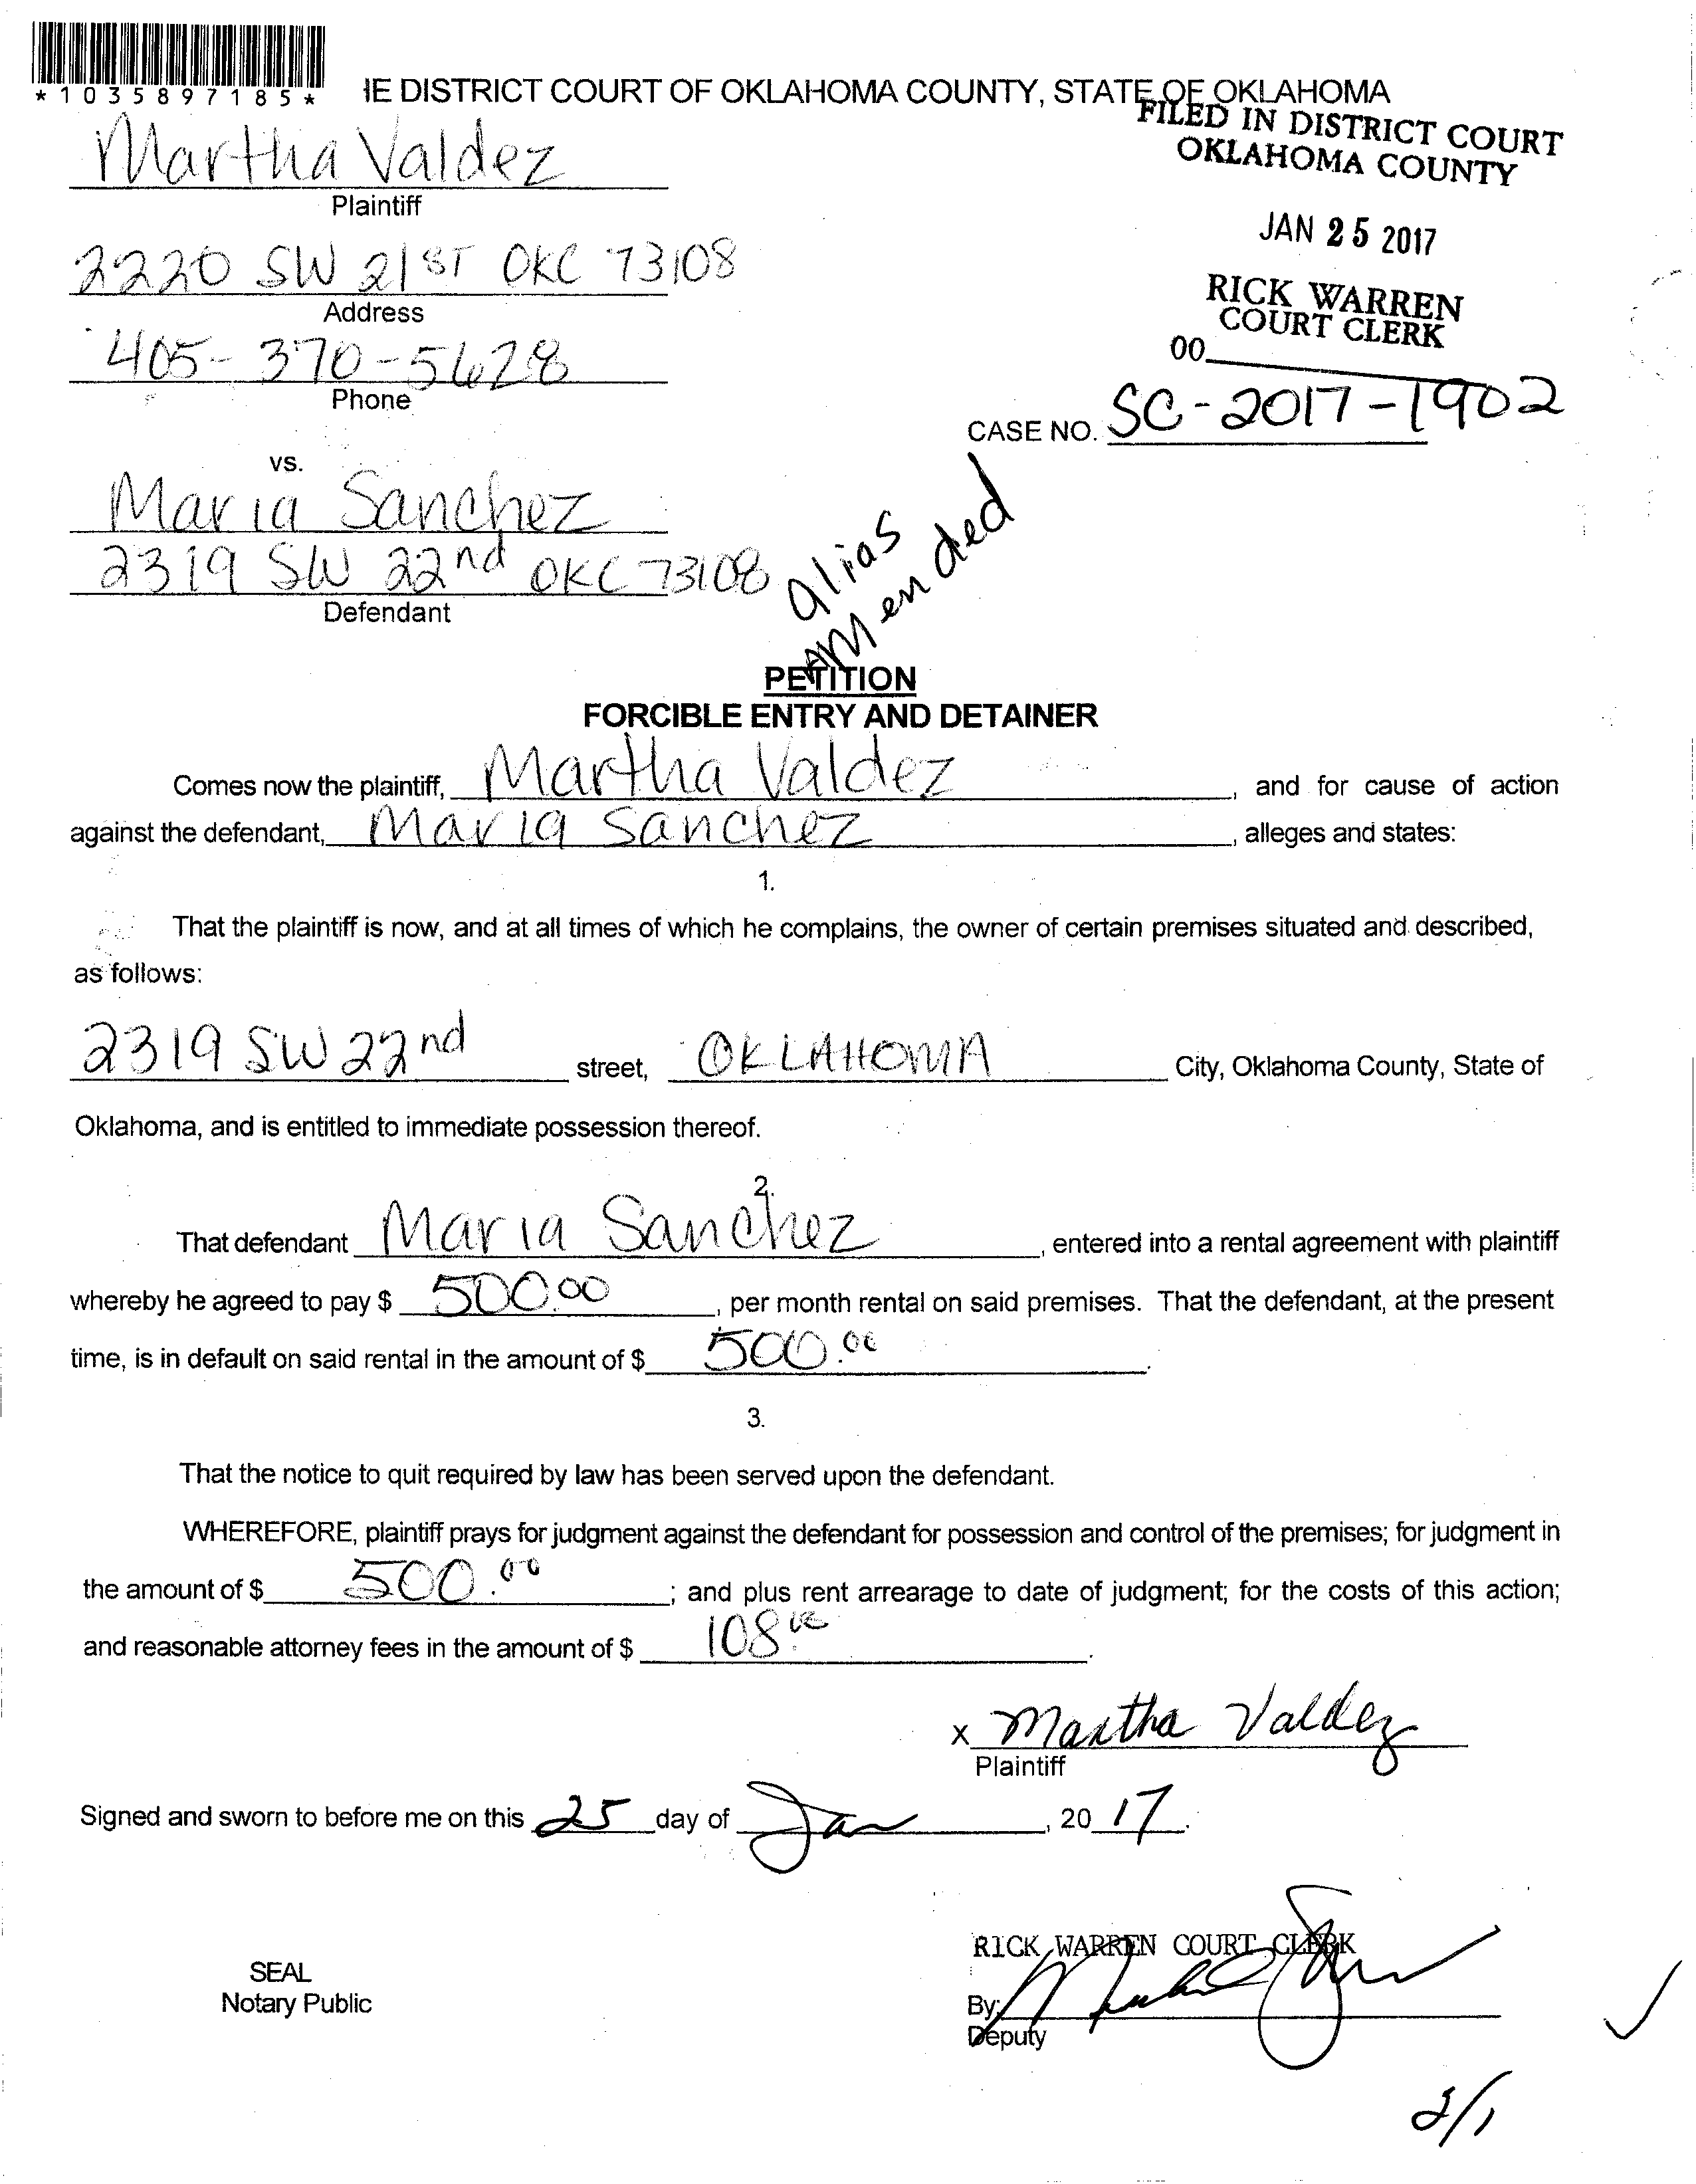 *1035897185*
IE DISTRICT COURT OF OKLAHOMA COUNTY, STATE OF OKLAHOMA
FILED IN DISTRICT COURT
OKLAHOMA COUNTY
Martha Valdez
Plaintiff
JAN 25 2017
2220 SW 21ST OKC 73108
Address
RICK WARREN
COURT CLERK
00
405-370-5628
Phone
CASE NO. SC-2017-1902
vs.
Maria Sanchez
2319 SW 22nd OKC 73108
Defendant
alias
Amended
PETITION
FORCIBLE ENTRY AND DETAINER
Comes now the plaintiff, Martha Valdez, and for cause of action
against the defendant, Maria Sanchez, alleges and states:
1.
That the plaintiff is now, and at all times of which he complains, the owner of certain premises situated and described,
as follows:
2319 SW 22nd street, OKLAHOMA City, Oklahoma County, State of
Oklahoma, and is entitled to immediate possession thereof.
2.
That defendant Maria Sanchez, entered into a rental agreement with plaintiff
whereby he agreed to pay $ 500.00, per month rental on said premises. That the defendant, at the present
time, is in default on said rental in the amount of $ 500.00.
3.
That the notice to quit required by law has been served upon the defendant.
WHEREFORE, plaintiff prays for judgment against the defendant for possession and control of the premises; for judgment in
the amount of $ 500.00; and plus rent arrearage to date of judgment; for the costs of this action;
and reasonable attorney fees in the amount of $ 108.00.
x Martha Valdez
Plaintiff
Signed and sworn to before me on this 25 day of Jan, 2017.
RICK WARREN COURT CLERK
SEAL
Notary Public
By:
Deputy
2/1